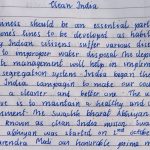 Clean India
nness should be an essential part
ones lines to be developed as habits
Indian citizens suffer various dise
to improper water disposal the deve
te management will help in implem
segregation systems India began the
India campaign to make our sour
cleaner and better one " The
ve is to maintain a healthy and
onment the Swachh bharat Abhiyan
known as clean India mission Swac
abhiyan was started on 2nd octobe
arendra Modi our honorable prime m